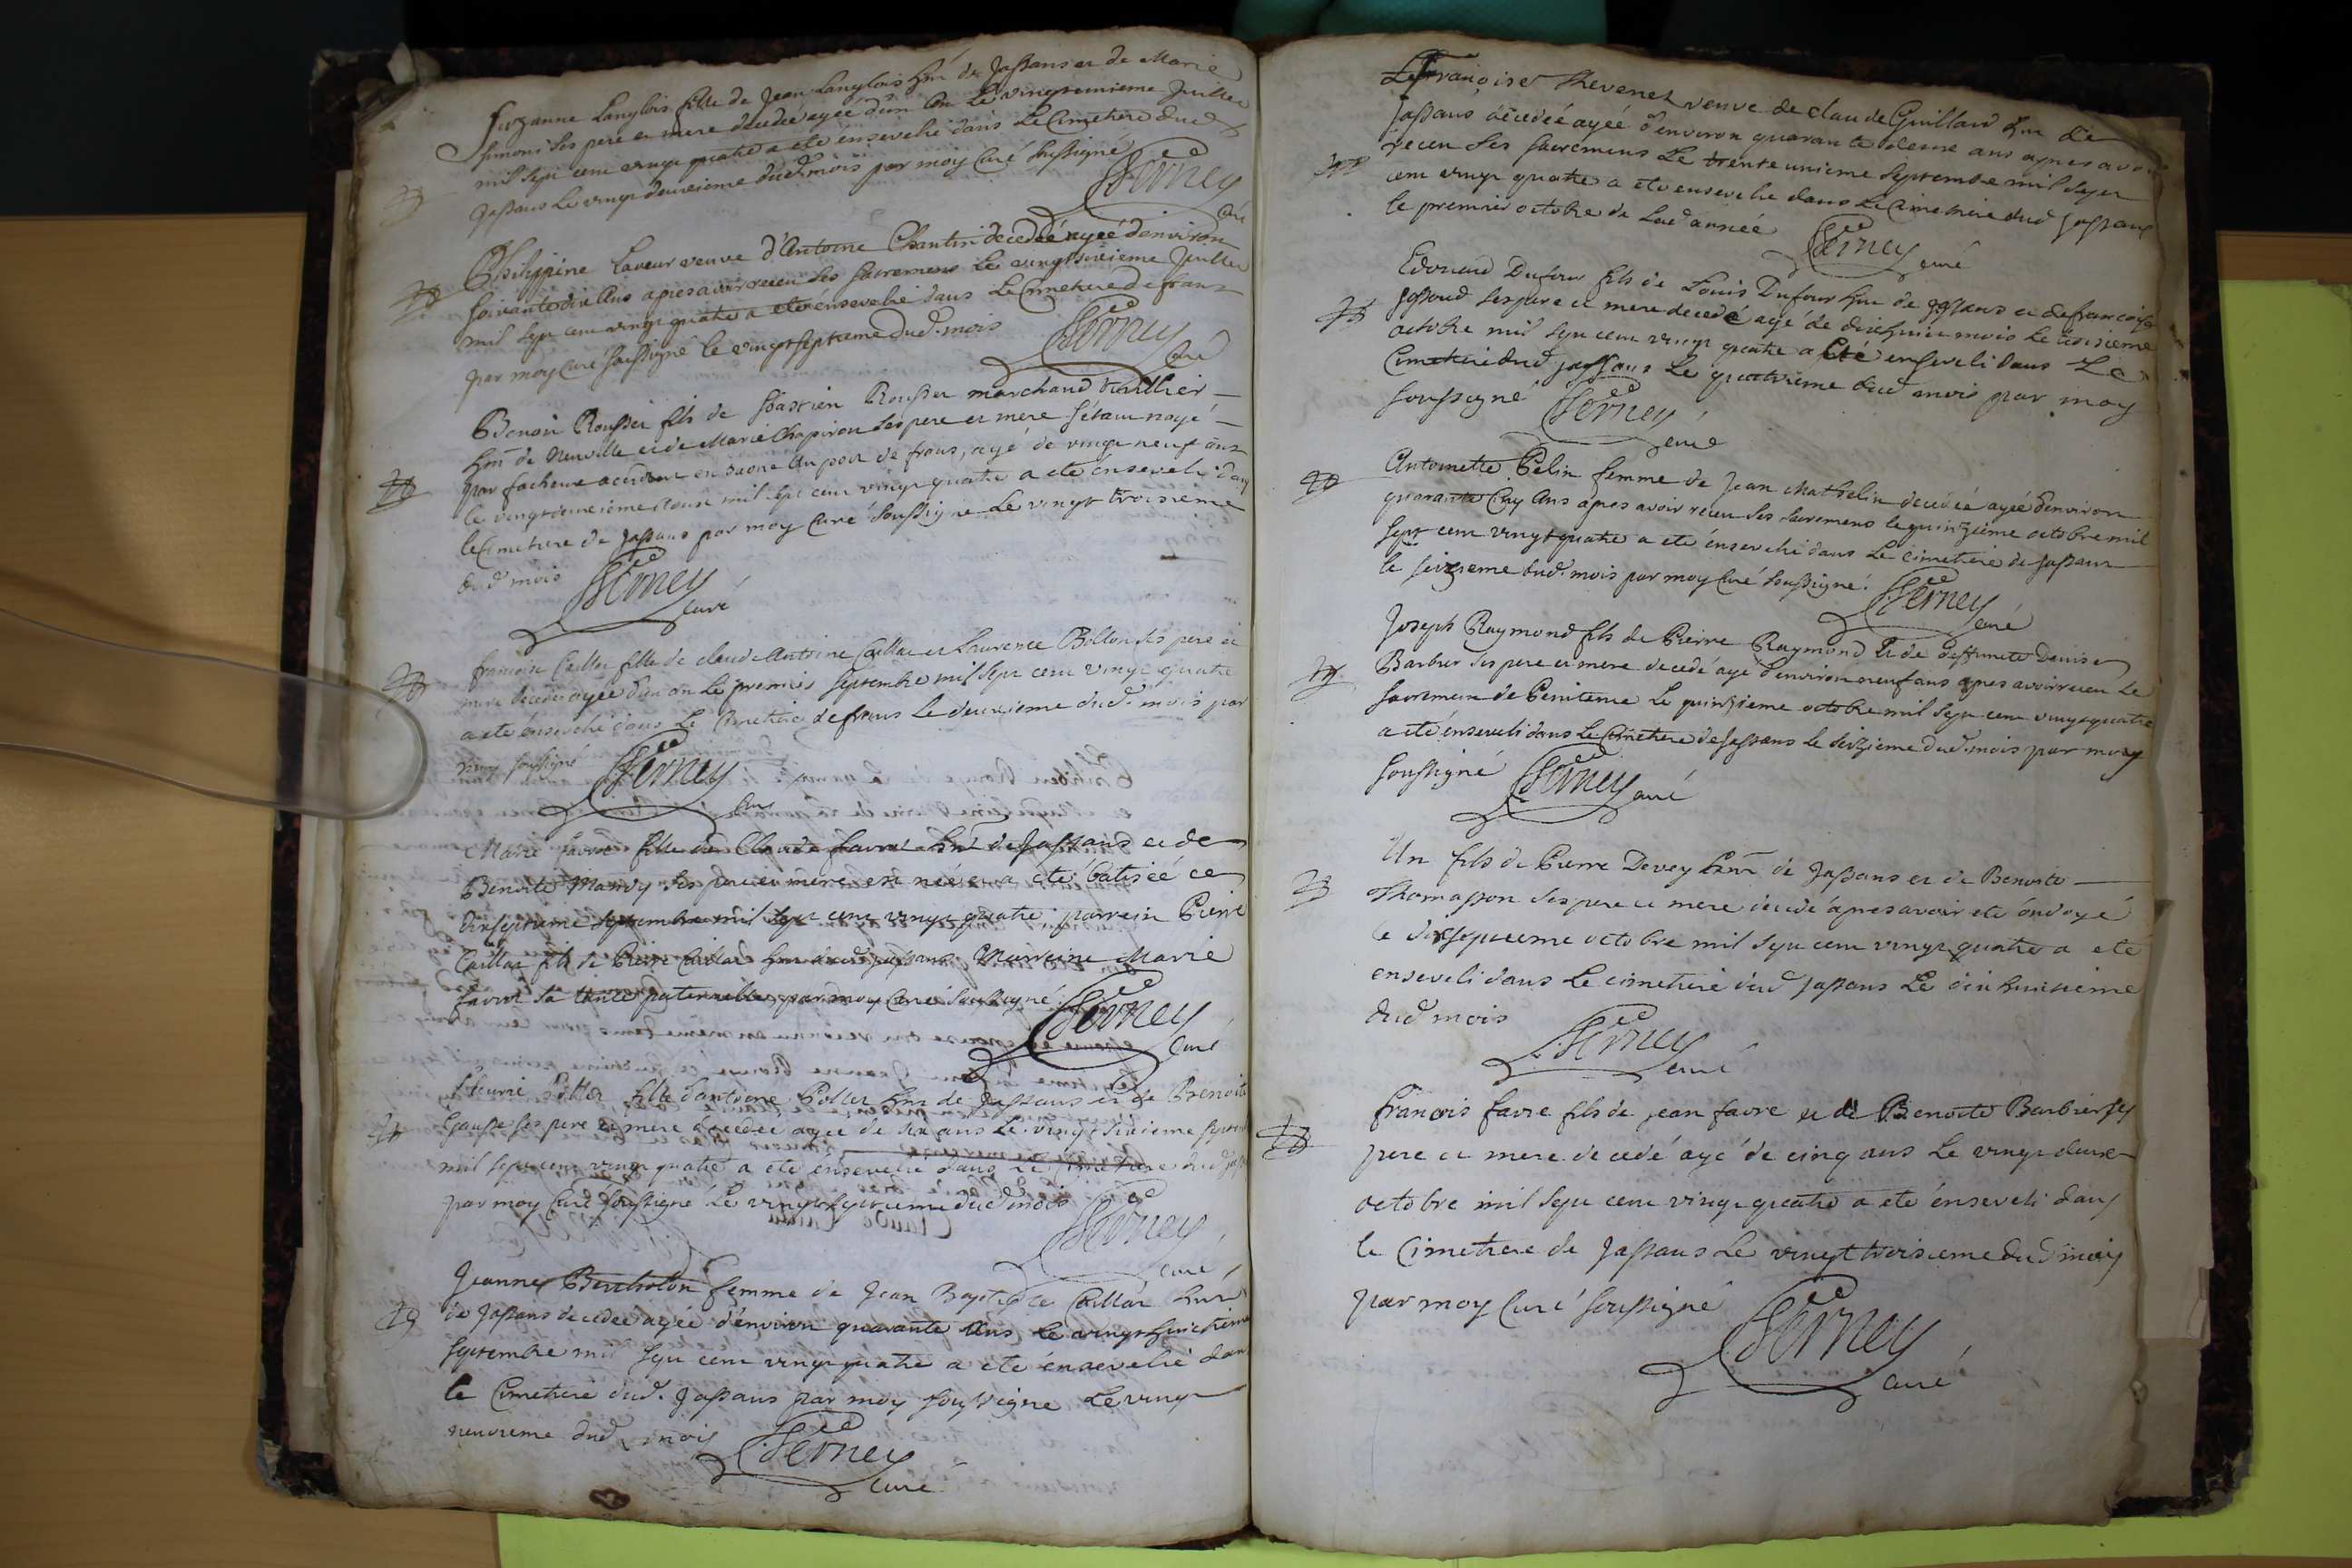 Suzanne Langlois fille de Jean Langlois hnt de Jassans et de Marie
Simoni ses pere et mere decedée agée d'un an Le vingt unieme Juillet
mil sept cent vingt quatre a eté énsevelie dans Le Cimetiere dud
Jassans Le vingt deuxieme dud. mois par moy Curé soussigné
Perney
Curé
Philippine Laveur veuve d'Antoine Chantin decedée agée d'environ
soixante dix Ans apres avoir receu Ses Sacremens Le vingt sixieme Juillet
mil sept cent vingt quatre a eté énsevelie dans Le Cimetiere de frans
par moy Curé soussigné le vingt septieme dud. mois
Perney
Curé
Benoit Rousset fils de Sbastien Rousset marchand
hnt de Neuville et de Marie Chapiron ses pere et mere s'étant noyé
par facheux accident en Saone au port de frans, agé de vingt neuf ans
le vingt deuxieme Aoust mil sept cent vingt quatre a eté énseveli dans
le Cimetiere de Jassans par moy Curé soussigné Le vingt troisieme
dud mois
Perney
curé
francoise Caillat fille de claude Antoine Caillat et Laurence Billon ses pere et
mere decedée agée d'un an Le premier septembre mil sept cent vingt quatre
a eté énsevelie dans Le Cimetiere de frans Le deuxieme dud. mois par
moy soussigné
Perney
curé
Marie favrot fille de Claude favrot hnt de Jassans et de
Benoite Mandy ses pere et mere est née et a eté batisée ce
dixseptieme septembre mil sept cent vingt quatre parrein Pierre
Caillat fils de Pierre Caillat hnt dud Jassans Marreine Marie
favrot sa tante paternelle par moy Curé soussigné
Perney
Curé
fleurie Pollet fille d'antoine Pollet hnt de Jassans et de Benoite
ses pere et mere decedée agée de six ans Le vingt sixieme
mil sept cent vingt quatre a eté énsevelie dans Le Cimetiere dud
par moy Curé soussigné Le vingt septieme dud mois
Perney
curé
Jeanne Bertholon femme de Jean Baptiste Caillat hnt
de Jassans decedée agée d'environ quarante Ans Le vingt huictieme
septembre mil sept cent vingt quatre a eté énsevelie dans
le Cimetiere dud. Jassans par moy soussigné Le vingt
neuvieme dud. mois
Perney
curé
Françoise Thevenet veuve de claude Guillard hnt de
Jassans decedée agée d'environ quarante deux ans apres avoir
receu Ses Sacremens Le trente unieme septembre mil sept
cent vingt quatre a eté ensevelie dans Le Cimetiere dud Jassans
le premier octobre de Lad année
Perney
curé
Edouard Dufour fils de Louis Dufour hnt de Jassans et de francoise
ses pere et mere decedé agé de dixhuit mois Le troisieme
octobre mil sept cent vingt quatre a eté enseveli dans Le
Cimetiere dud Jassans Le quatrieme dud mois par moy
soussigné
Perney
curé
Antoinette Pelin femme de Jean Mathelin decedée agée d'environ
quarante Cinq Ans apres avoir receu Ses Sacremens le quinzieme octobre mil
sept cent vingt quatre a eté énsevelie dans Le Cimetiere de Jassans
le seizieme dud. mois par moy Curé soussigné
Perney
curé
Joseph Raymond fils de Pierre Raymond et de deffuncte Denise
Barbier ses pere et mere decedé agé d'environ neuf ans apres avoir receu Le
Sacrement de Penitence Le quinzieme octobre mil sept cent vingt quatre
a eté énseveli dans Le Cimetiere de Jassans le seizieme dud. mois par moy
soussigné
Perney
curé
Un fils de Pierre Devey hnt de Jassans et de Benoite
Thomasson ses pere et mere decedé apres avoir eté ondoyé
le dixseptieme octobre mil sept cent vingt quatre a eté
enseveli dans Le cimetiere dud Jassans Le dix huictieme
dud mois
Perney
curé
francois favre fils de jean favre et de Benoite Barbier ses
pere et mere decedé agé de cinq ans Le vingt deux
octobre mil sept cent vingt quatre a eté énseveli dans
le Cimetiere de Jassans Le vingt troisieme dud mois
par moy Curé soussigné
Perney
curé